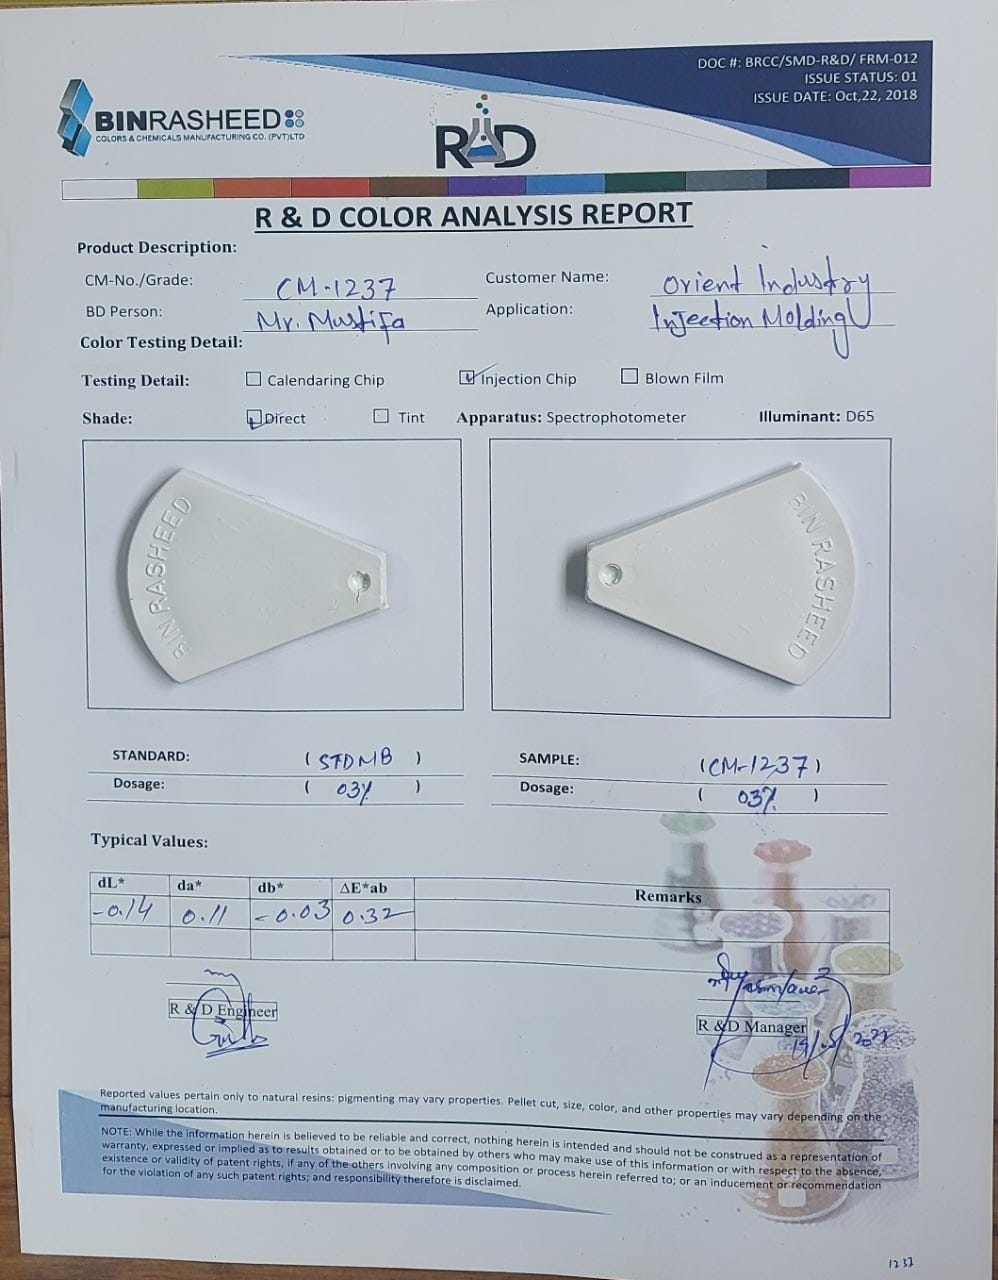 DOC #: BRCC/SMD-R&D/ FRM-012
ISSUE STATUS: 01
ISSUE DATE: Oct,22, 2018
BINRASHEED
COLORS & CHEMICALS MANUFACTURING CO. (PVT)LTD
R&D
R & D COLOR ANALYSIS REPORT
Product Description:
CM-No./Grade: CM-1237 Customer Name: Orient Industry
BD Person: Mr. Mustifa Application: Injection Molding
Color Testing Detail:
Testing Detail: Calendaring Chip Injection Chip Blown Film
Shade: Direct Tint Apparatus: Spectrophotometer Illuminant: D65
BIN RASHEED
BIN RASHEED
STANDARD: ( STDMB ) SAMPLE: (CM-1237)
Dosage: ( 03% ) Dosage: ( 03% )
Typical Values:
dL* da* db* ΔE*ab Remarks
-0.14 0.11 -0.03 0.32
R & D Engineer R & D Manager
Reported values pertain only to natural resins: pigmenting may vary properties. Pellet cut, size, color, and other properties may vary depending on the
manufacturing location.
NOTE: While the information herein is believed to be reliable and correct, nothing herein is intended and should not be construed as a representation of
warranty, expressed or implied as to results obtained or to be obtained by others who may make use of this information or with respect to the absence,
existence or validity of patent rights, if any of the others involving any composition or process herein referred to; or an inducement or recommendation
for the violation of any such patent rights; and responsibility therefore is disclaimed.
1237